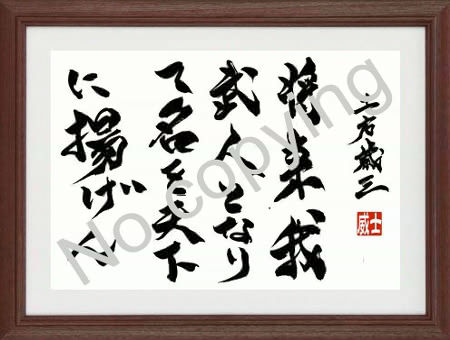 土方歳三
威士
将来我
武人となり
て名を天下
に揚げん
No copying